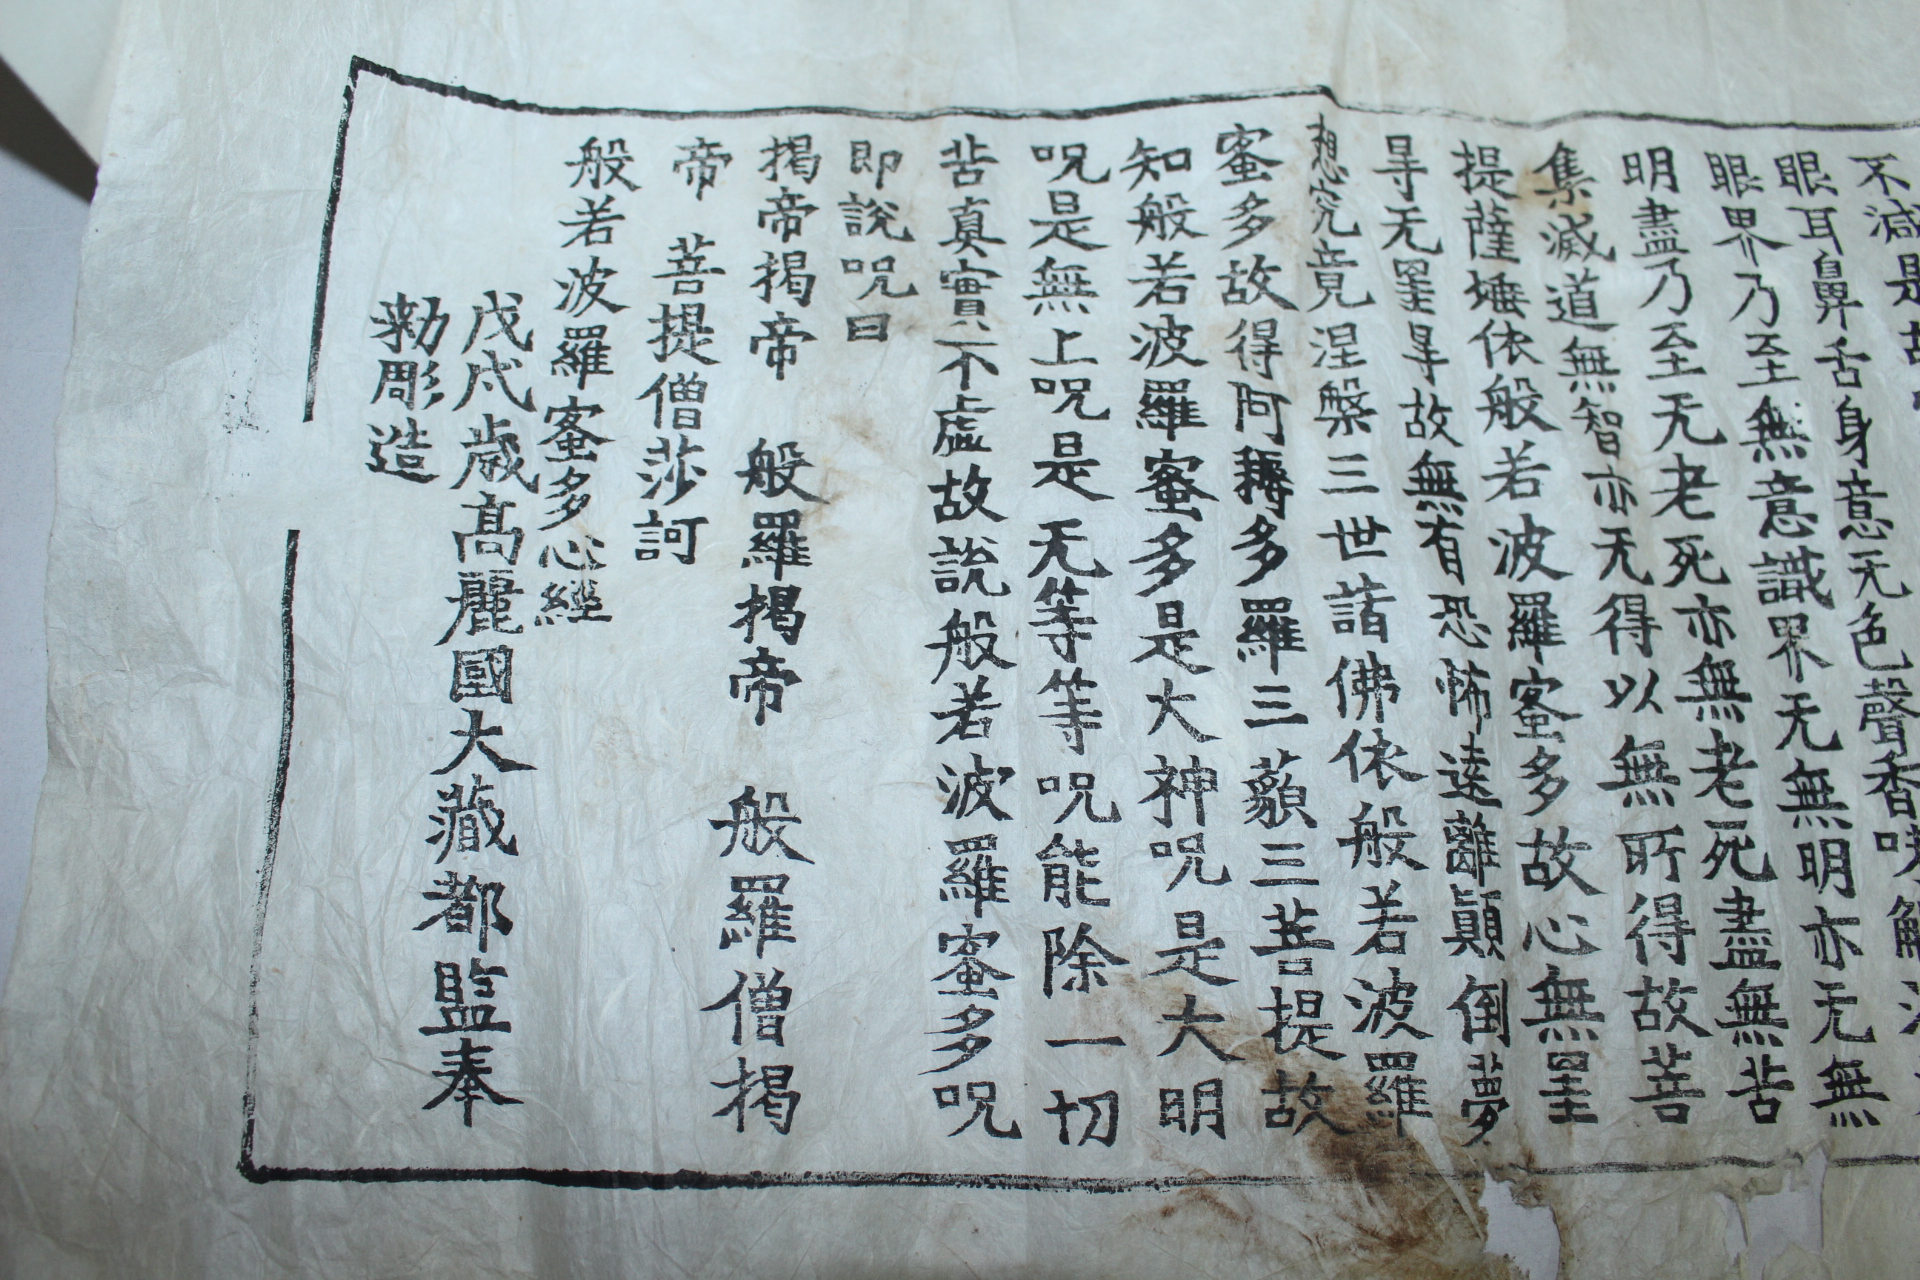 不減是故
眼耳鼻舌身意无色聲香味
眼界乃至無意識界无無明亦无無
明盡乃至无老死亦無老死盡無苦
集滅道無智亦无得以無所得故菩
提薩埵依般若波羅蜜多故心無罣
㝵无罣㝵故無有恐怖遠離顚倒夢
想究竟涅槃三世諸佛依般若波羅
蜜多故得阿耨多羅三藐三菩提故
知般若波羅蜜多是大神呪是大明
呪是無上呪是无等等呪能除一切
苦真實不虛故說般若波羅蜜多呪
即說呪曰
揭帝揭帝 般羅揭帝 般羅僧揭
帝 菩提僧莎訶
般若波羅蜜多心經
戊戌歲髙麗國大藏都監奉
勅彫造